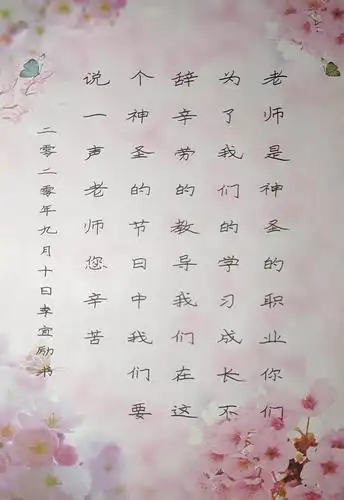 老师是神圣的职业你们
为了我们的学习成长不
辞辛劳的教导我们在这
个神圣的节日中我们要
说一声老师您辛苦
二零二零年九月十日李宜励书